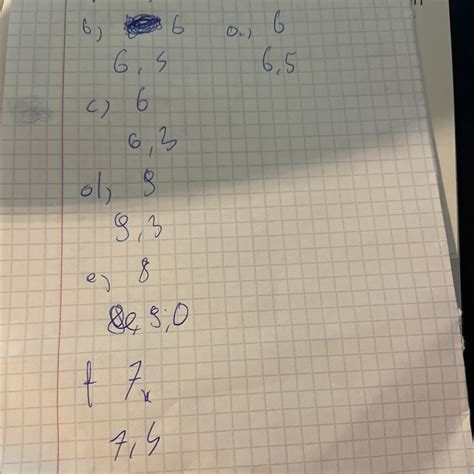 b) 6 a.) 6
6,4 6,5
c) 6
6,3
d) 9
9,3
e) 8
9,0
f 7
7,4